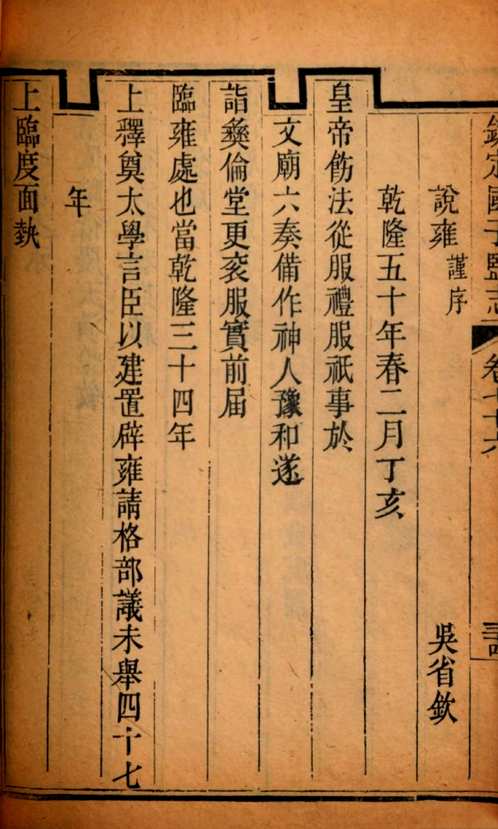 欽定國子監志 卷七十六
說雍謹序 吳省欽
乾隆五十年春二月丁亥
皇帝飭法從服禮服祇事於
文廟六奏備作神人豫和遂
詣彝倫堂更衮服實前屆
臨雍處也當乾隆三十四年
上釋奠太學言臣以建置辟雍請格部議未舉四十七
年
上臨度面埶